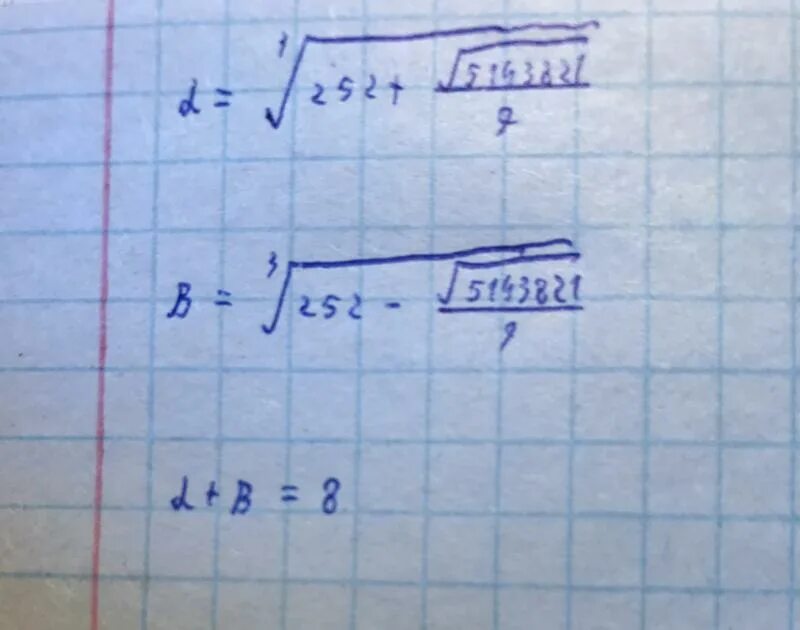 α = ∛(252 + √5143821 / 9)
β = ∛(252 - √5143821 / 9)
α + β = 8